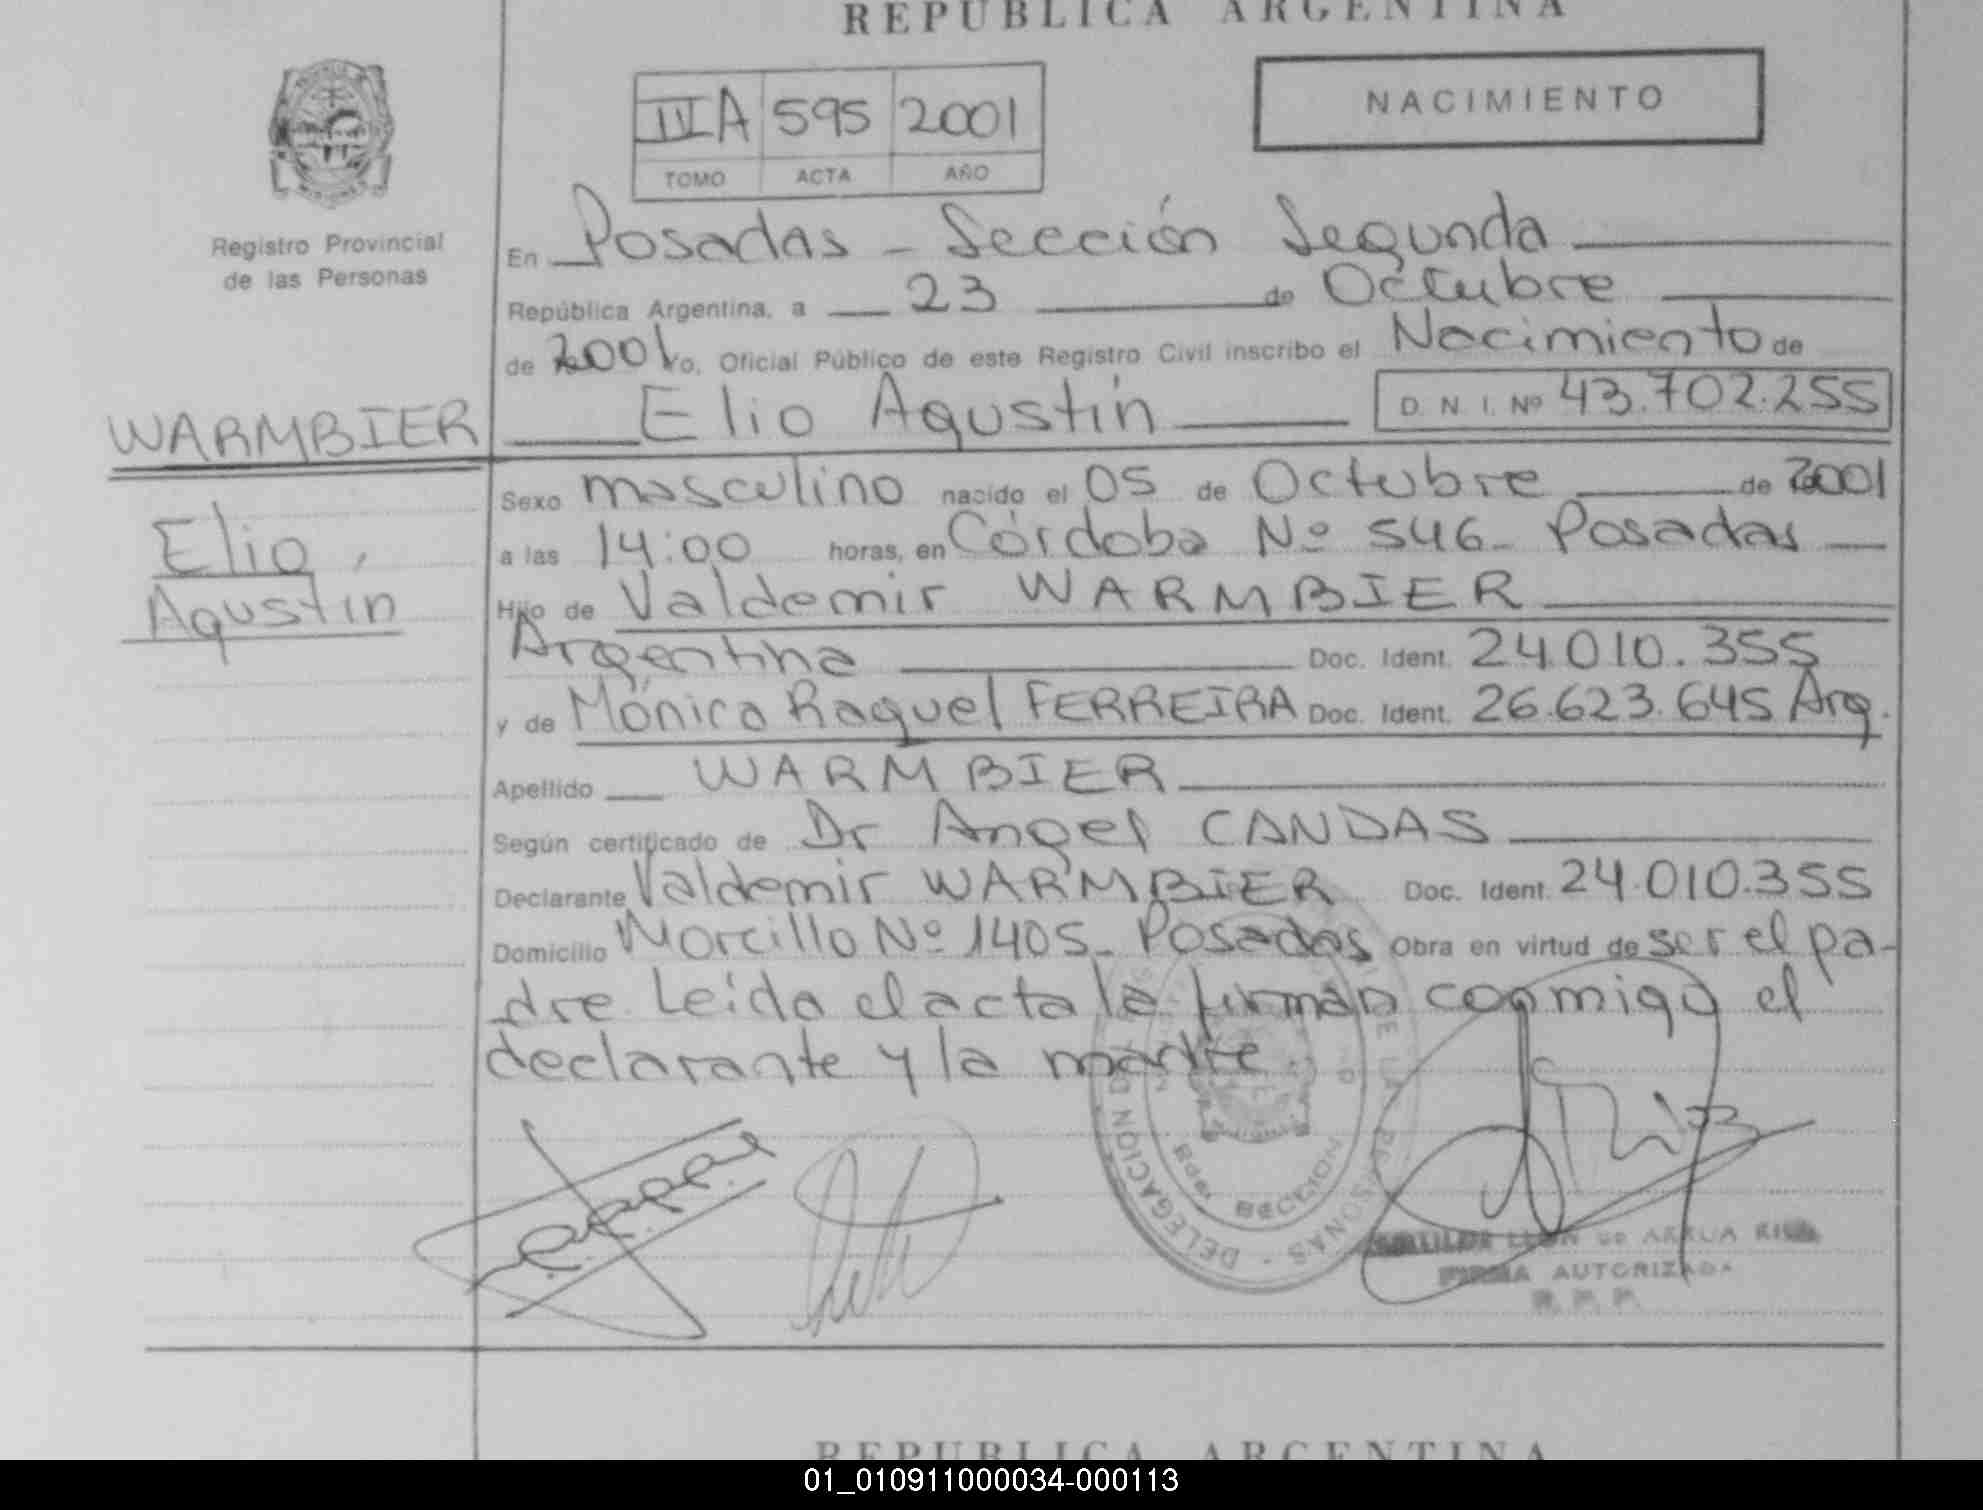 REPUBLICA ARGENTINA
NACIMIENTO
IIIA 595 2001
TOMO ACTA AÑO
Registro Provincial
de las Personas
En Posadas - Sección Segunda
República Argentina, a 23 de Octubre
de 2001 Yo, Oficial Público de este Registro Civil inscribo el Nacimiento de
WARMBIER
Elio Agustín D. N. I. Nº 43.702.255
Elio,
Agustín
Sexo masculino nacido el 05 de Octubre de 2001
a las 14:00 horas, en Córdoba Nº 546- Posadas
Hijo de Valdemir WARMBIER
Argentina Doc. Ident. 24.010.355
y de Mónica Raquel FERREIRA Doc. Ident. 26.623.645 Arg.
Apellido WARMBIER
Según certificado de Dr Angel CANDAS
Declarante Valdemir WARMBIER Doc. Ident. 24.010.355
Domicilio Morcillo Nº 1405- Posadas Obra en virtud de ser el pa-
dre. Leída el acta la firman conmigo el
declarante y la madre.
DELEGACION
DE LAS PERSONAS
SECCION
DE ARRUA
FIRMA AUTORIZADA
R. P. P.
REPUBLICA ARGENTINA
01_010911000034-000113